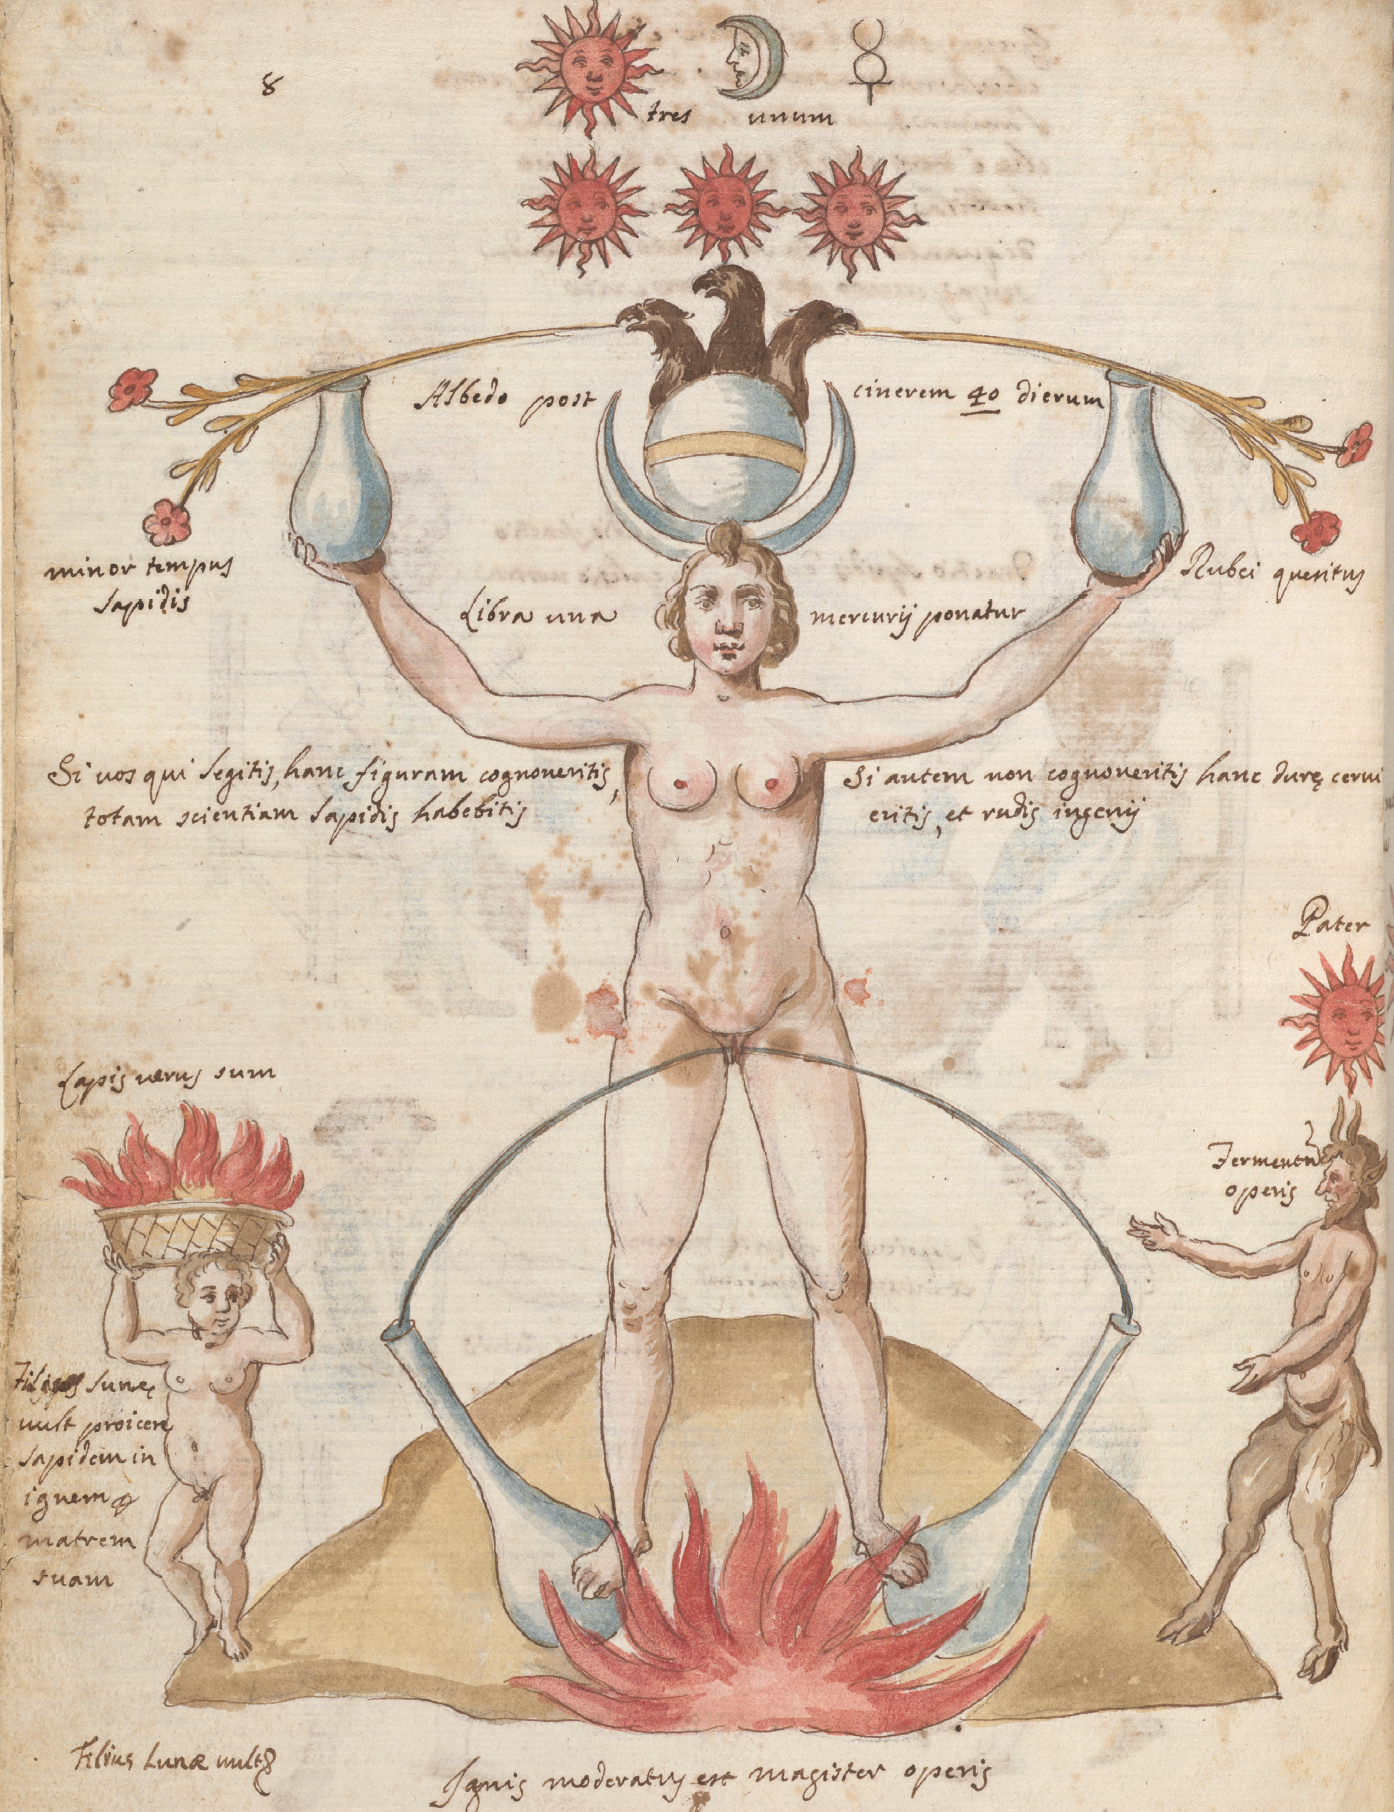 8
tres unum
Albedo post cinerem 40 dierum
minor tempus
lapidis
Rubei queritus
Libra una mercurij ponatur
Si vos qui legitis, hanc figuram cognoveritis,
totam scientiam lapidis habebitis
Si autem non cognoveritis hanc durę cervi
eritis, et rudis ingenij
Pater
Lapis verus sum
Fermentū
operis
Filius lunę
vult proicere
lapidem in
ignem
matrem
suam
Filius Lunæ vult
Ignis moderatus est magister operis